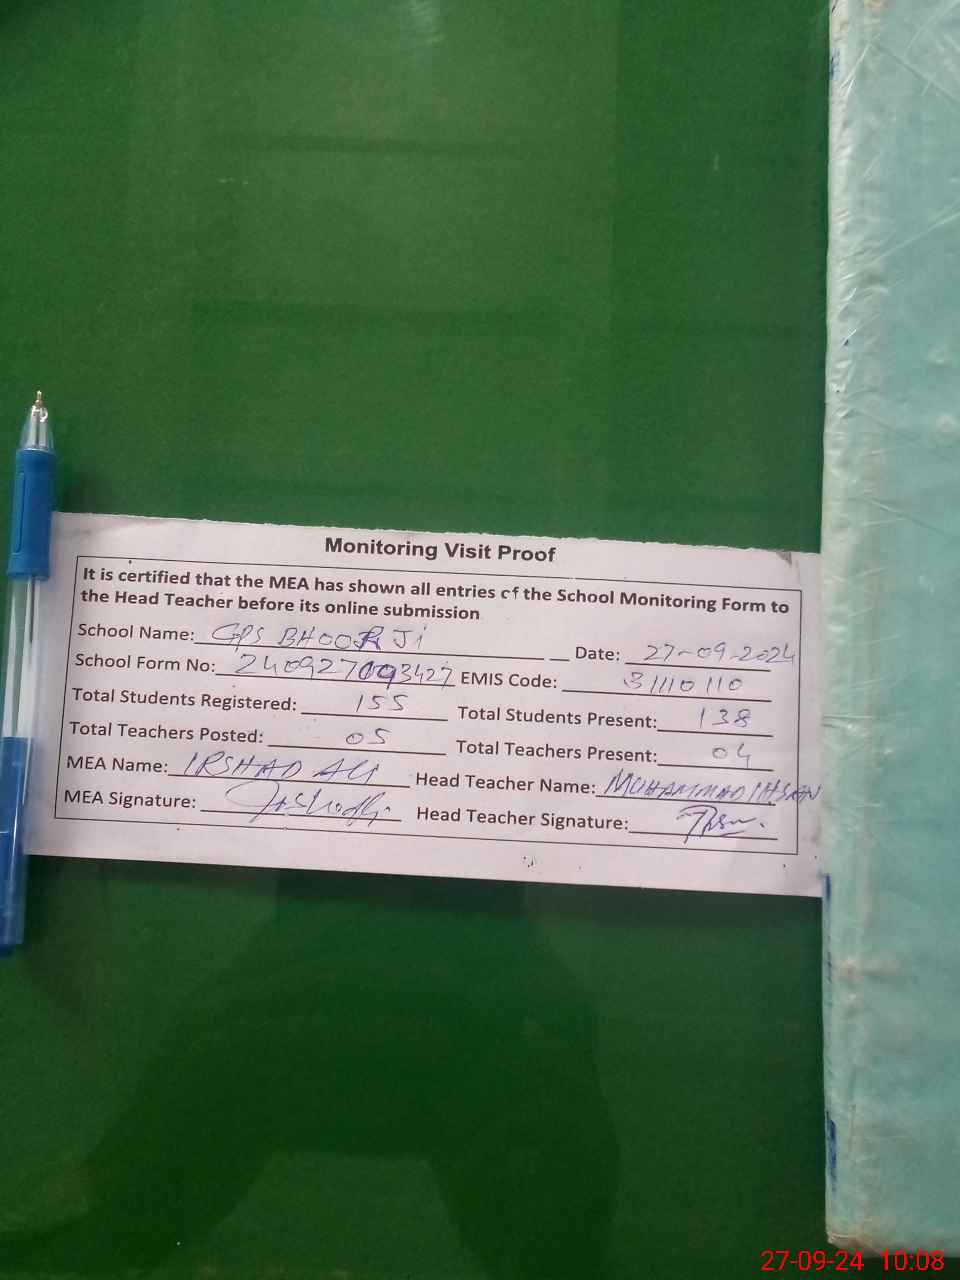 Monitoring Visit Proof
It is certified that the MEA has shown all entries of the School Monitoring Form to
the Head Teacher before its online submission
School Name: GPS BHOOR JI Date: 27-09-2024
School Form No: 240927093427 EMIS Code: 31110110
Total Students Registered: 155 Total Students Present: 138
Total Teachers Posted: 05 Total Teachers Present: 04
MEA Name: IRSHAD ALI Head Teacher Name: MUHAMMAD IHSAN
MEA Signature: Head Teacher Signature:
27-09-24 10:08